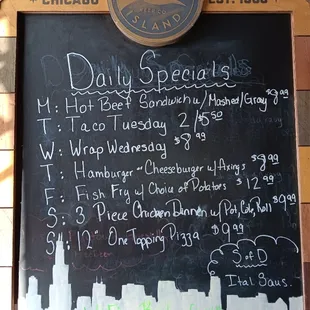 CHICAGO
EST. 1988
ISLAND
Daily Specials
M: Hot Beef Sandwich w/Mashed/Gravy $8.99
T: Taco Tuesday 2/$5.50
W: Wrap Wednesday $8.99
T: Hamburger or Cheeseburger w/Fixings $8.99
F: Fish Fry w/ Choice of Potatoes $12.99
S: 3 Piece Chicken Dinner w/ Pot, Cole, Roll $9.99
S: 12" One Topping Pizza $9.99
S of D
Ital Saus.